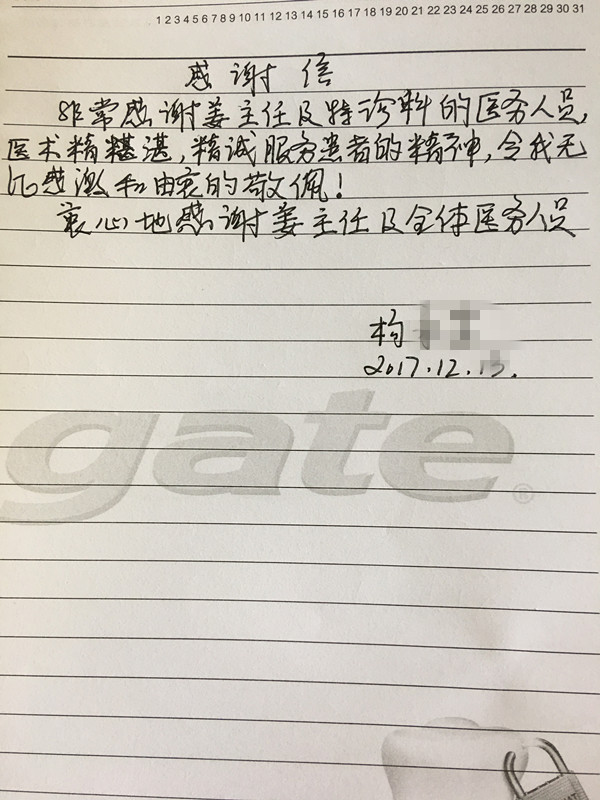 1 2 3 4 5 6 7 8 9 10 11 12 13 14 15 16 17 18 19 20 21 22 23 24 25 26 27 28 29 30 31
感谢信
非常感谢姜主任及特诊科的医务人员,
医术精湛,精诚服务患者的精神,令我无
比感激和由衷的敬佩!
衷心地感谢姜主任及全体医务人员
2017.12.13.
gate®